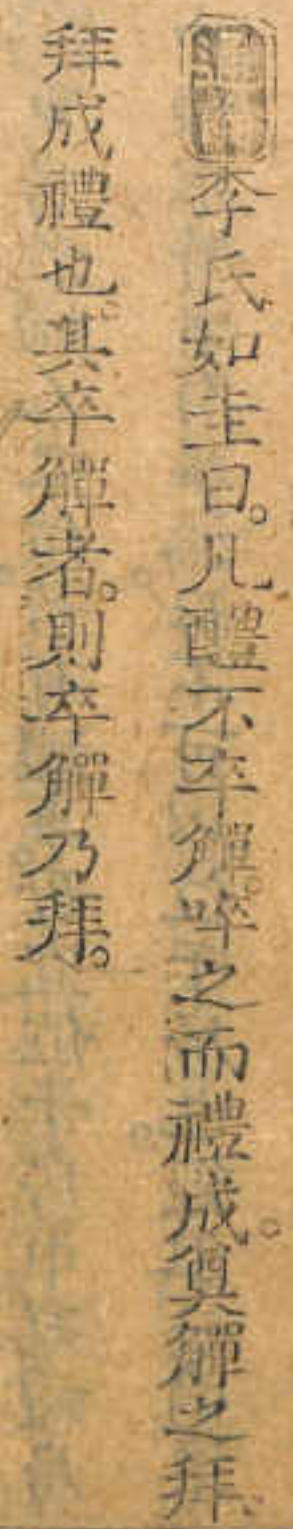 李氏如圭曰。凡醴不卒觶。啐之而禮成。奠觶之拜。
拜成禮也。其卒觶者。則卒觶乃拜。